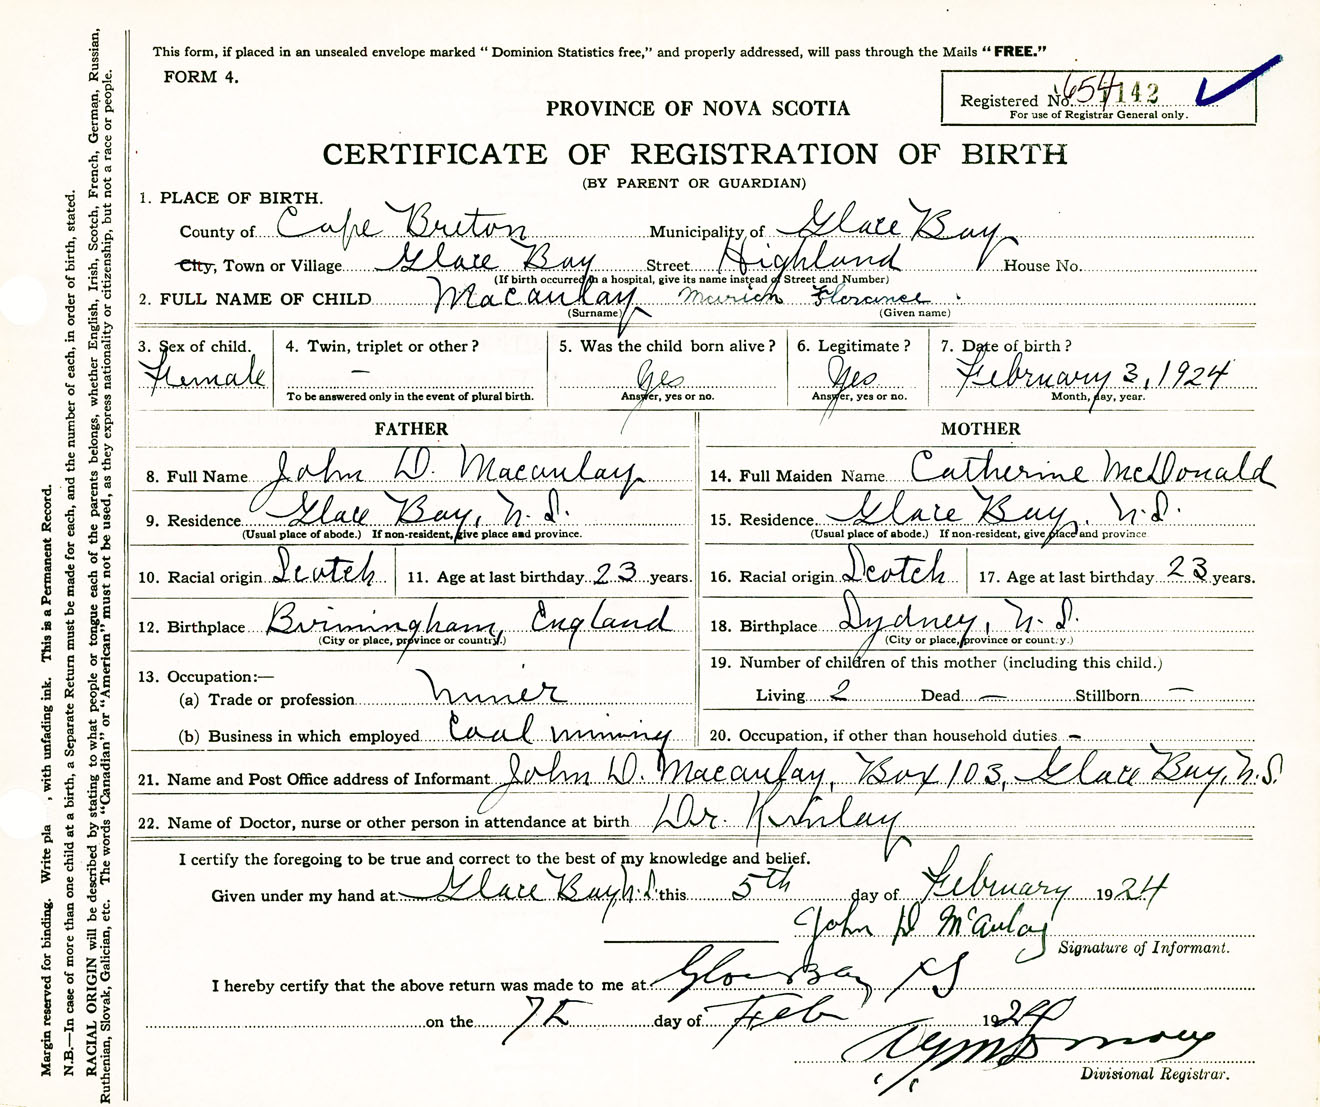 This form, if placed in an unsealed envelope marked "Dominion Statistics free," and properly addressed, will pass through the Mails "FREE."
FORM 4.
Registered No. 654 1142
For use of Registrar General only.
PROVINCE OF NOVA SCOTIA
CERTIFICATE OF REGISTRATION OF BIRTH
(BY PARENT OR GUARDIAN)
1. PLACE OF BIRTH.
County of Cape Breton Municipality of Glace Bay
City, Town or Village Glace Bay Street Highland House No.
(If birth occurred in a hospital, give its name instead of Street and Number)
2. FULL NAME OF CHILD Macaulay Marion Florance
(Surname) (Given name)
3. Sex of child. 4. Twin, triplet or other? 5. Was the child born alive? 6. Legitimate? 7. Date of birth?
Female — Yes Yes February 3, 1924
To be answered only in the event of plural birth. Answer, yes or no. Answer, yes or no. Month, day, year.
FATHER MOTHER
8. Full Name John D. Macaulay 14. Full Maiden Name Catherine McDonald
9. Residence Glace Bay, N.S. 15. Residence Glace Bay, N.S.
(Usual place of abode.) If non-resident, give place and province. (Usual place of abode.) If non-resident, give place and province
10. Racial origin Scotch 11. Age at last birthday 23 years. 16. Racial origin Scotch 17. Age at last birthday 23 years.
12. Birthplace Birmingham, England 18. Birthplace Sydney, N.S.
(City or place, province or country.) (City or place, province or country.)
13. Occupation:— 19. Number of children of this mother (including this child.)
(a) Trade or profession miner Living 2 Dead — Stillborn —
(b) Business in which employed Coal mining 20. Occupation, if other than household duties —
21. Name and Post Office address of Informant John D. Macaulay, Box 103, Glace Bay, N.S.
22. Name of Doctor, nurse or other person in attendance at birth Dr.
I certify the foregoing to be true and correct to the best of my knowledge and belief.
Given under my hand at Glace Bay, N.S. this 5th day of February 1924
John D McAulay
Signature of Informant.
I hereby certify that the above return was made to me at Glace Bay NS
on the 7th day of Feb 1924
Divisional Registrar.
Margin reserved for binding. Write pla , with unfading ink. This is a Permanent Record.
N.B.—In case of more than one child at a birth, a Separate Return must be made for each, and the number of each, in order of birth, stated.
RACIAL ORIGIN will be described by stating to what people or tongue each of the parents belongs, whether English, Irish, Scotch, French, German, Russian,
Ruthenian, Slovak, Galician, etc. The words "Canadian" or "American" must not be used, as they express nationality or citizenship, but not a race or people.